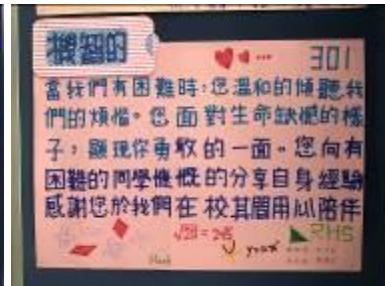 機智的
301
當我們有困難時，您溫和的傾聽我
們的煩惱。您面對生命缺憾的樣
子，顯現你勇敢的一面。您向有
困難的同學慷慨的分享自身經驗
感謝您於我們在校其間用心陪伴
RHS